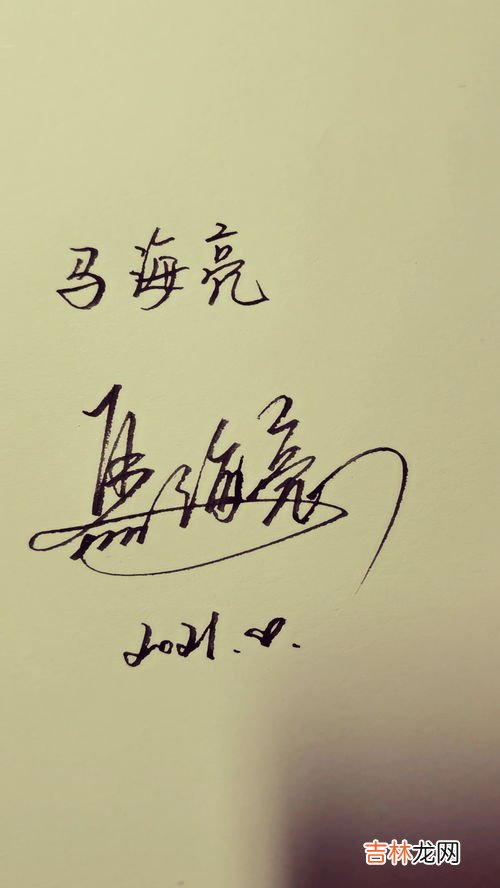 马海亮
馬海亮
2021.8.
吉林龙网